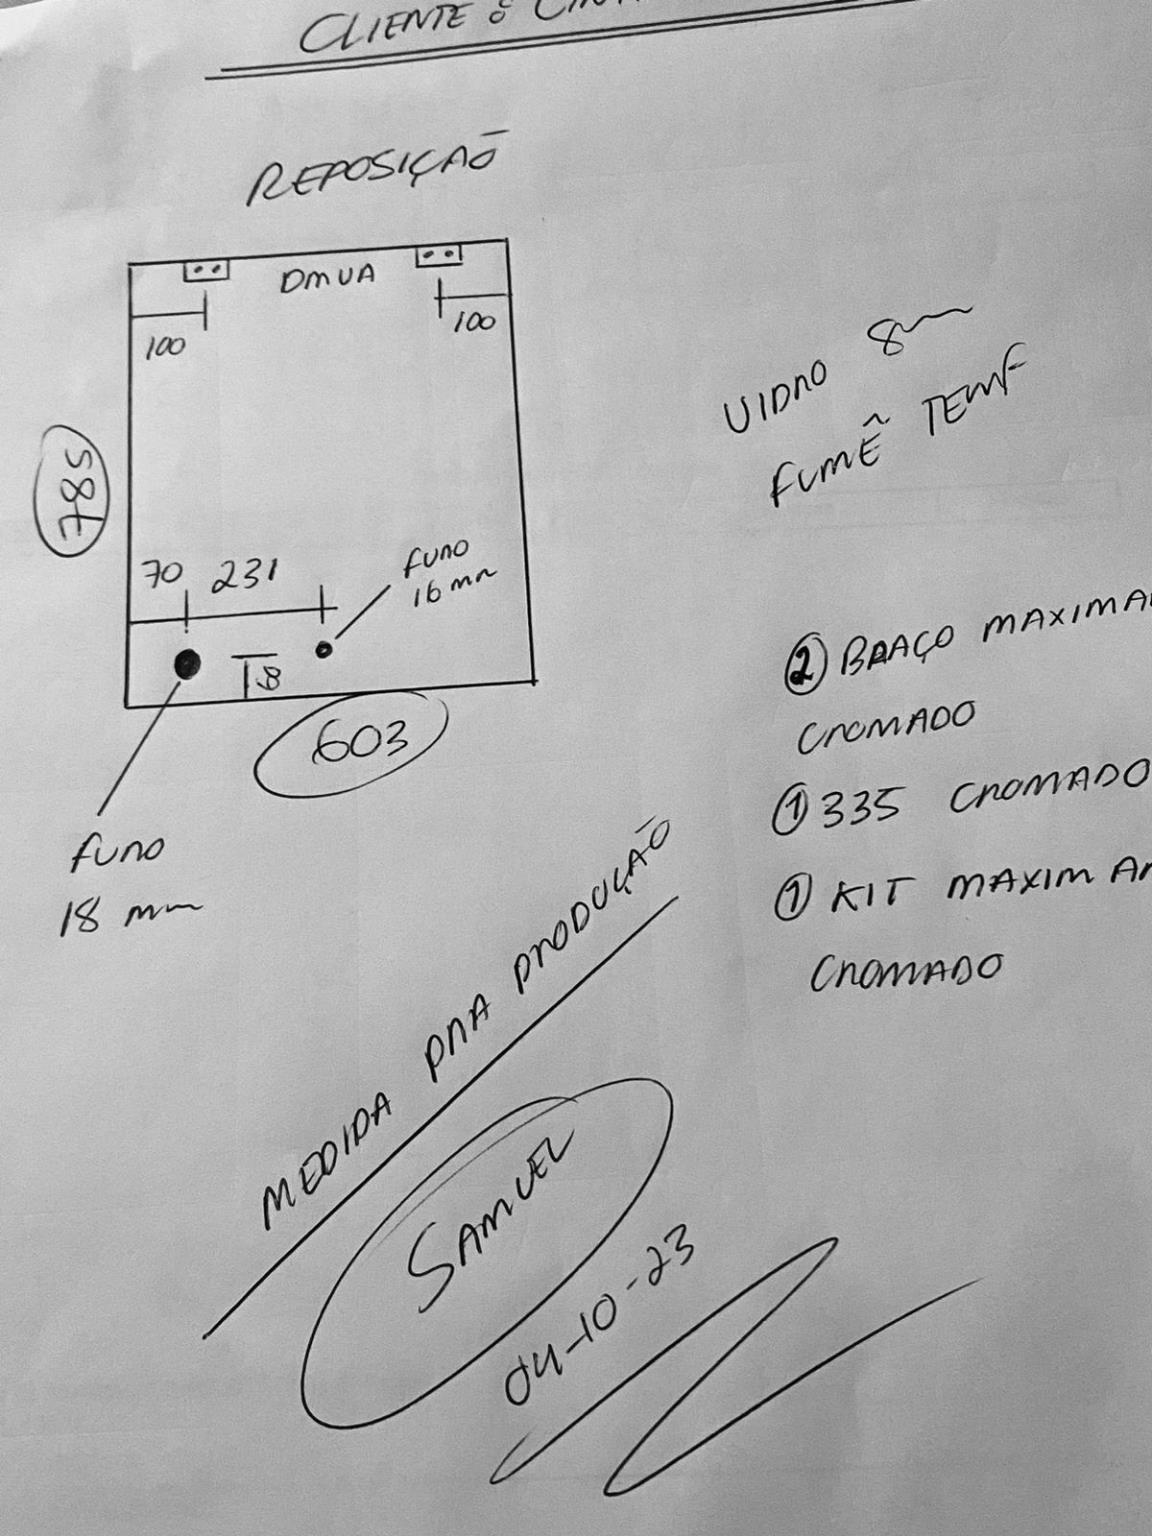 CLIENTE :
REPOSIÇÃO
DMUA
100
100
785
70 231
FURO
16 mm
18
603
FURO
18 mm
VIDRO 8mm
FUMÊ TEMP
2 BRAÇO MAXIMA
CROMADO
1 335 CROMADO
1 KIT MAXIM AR
CROMADO
MEDIDA PRA PRODUÇÃO
SAMUEL
04-10-23